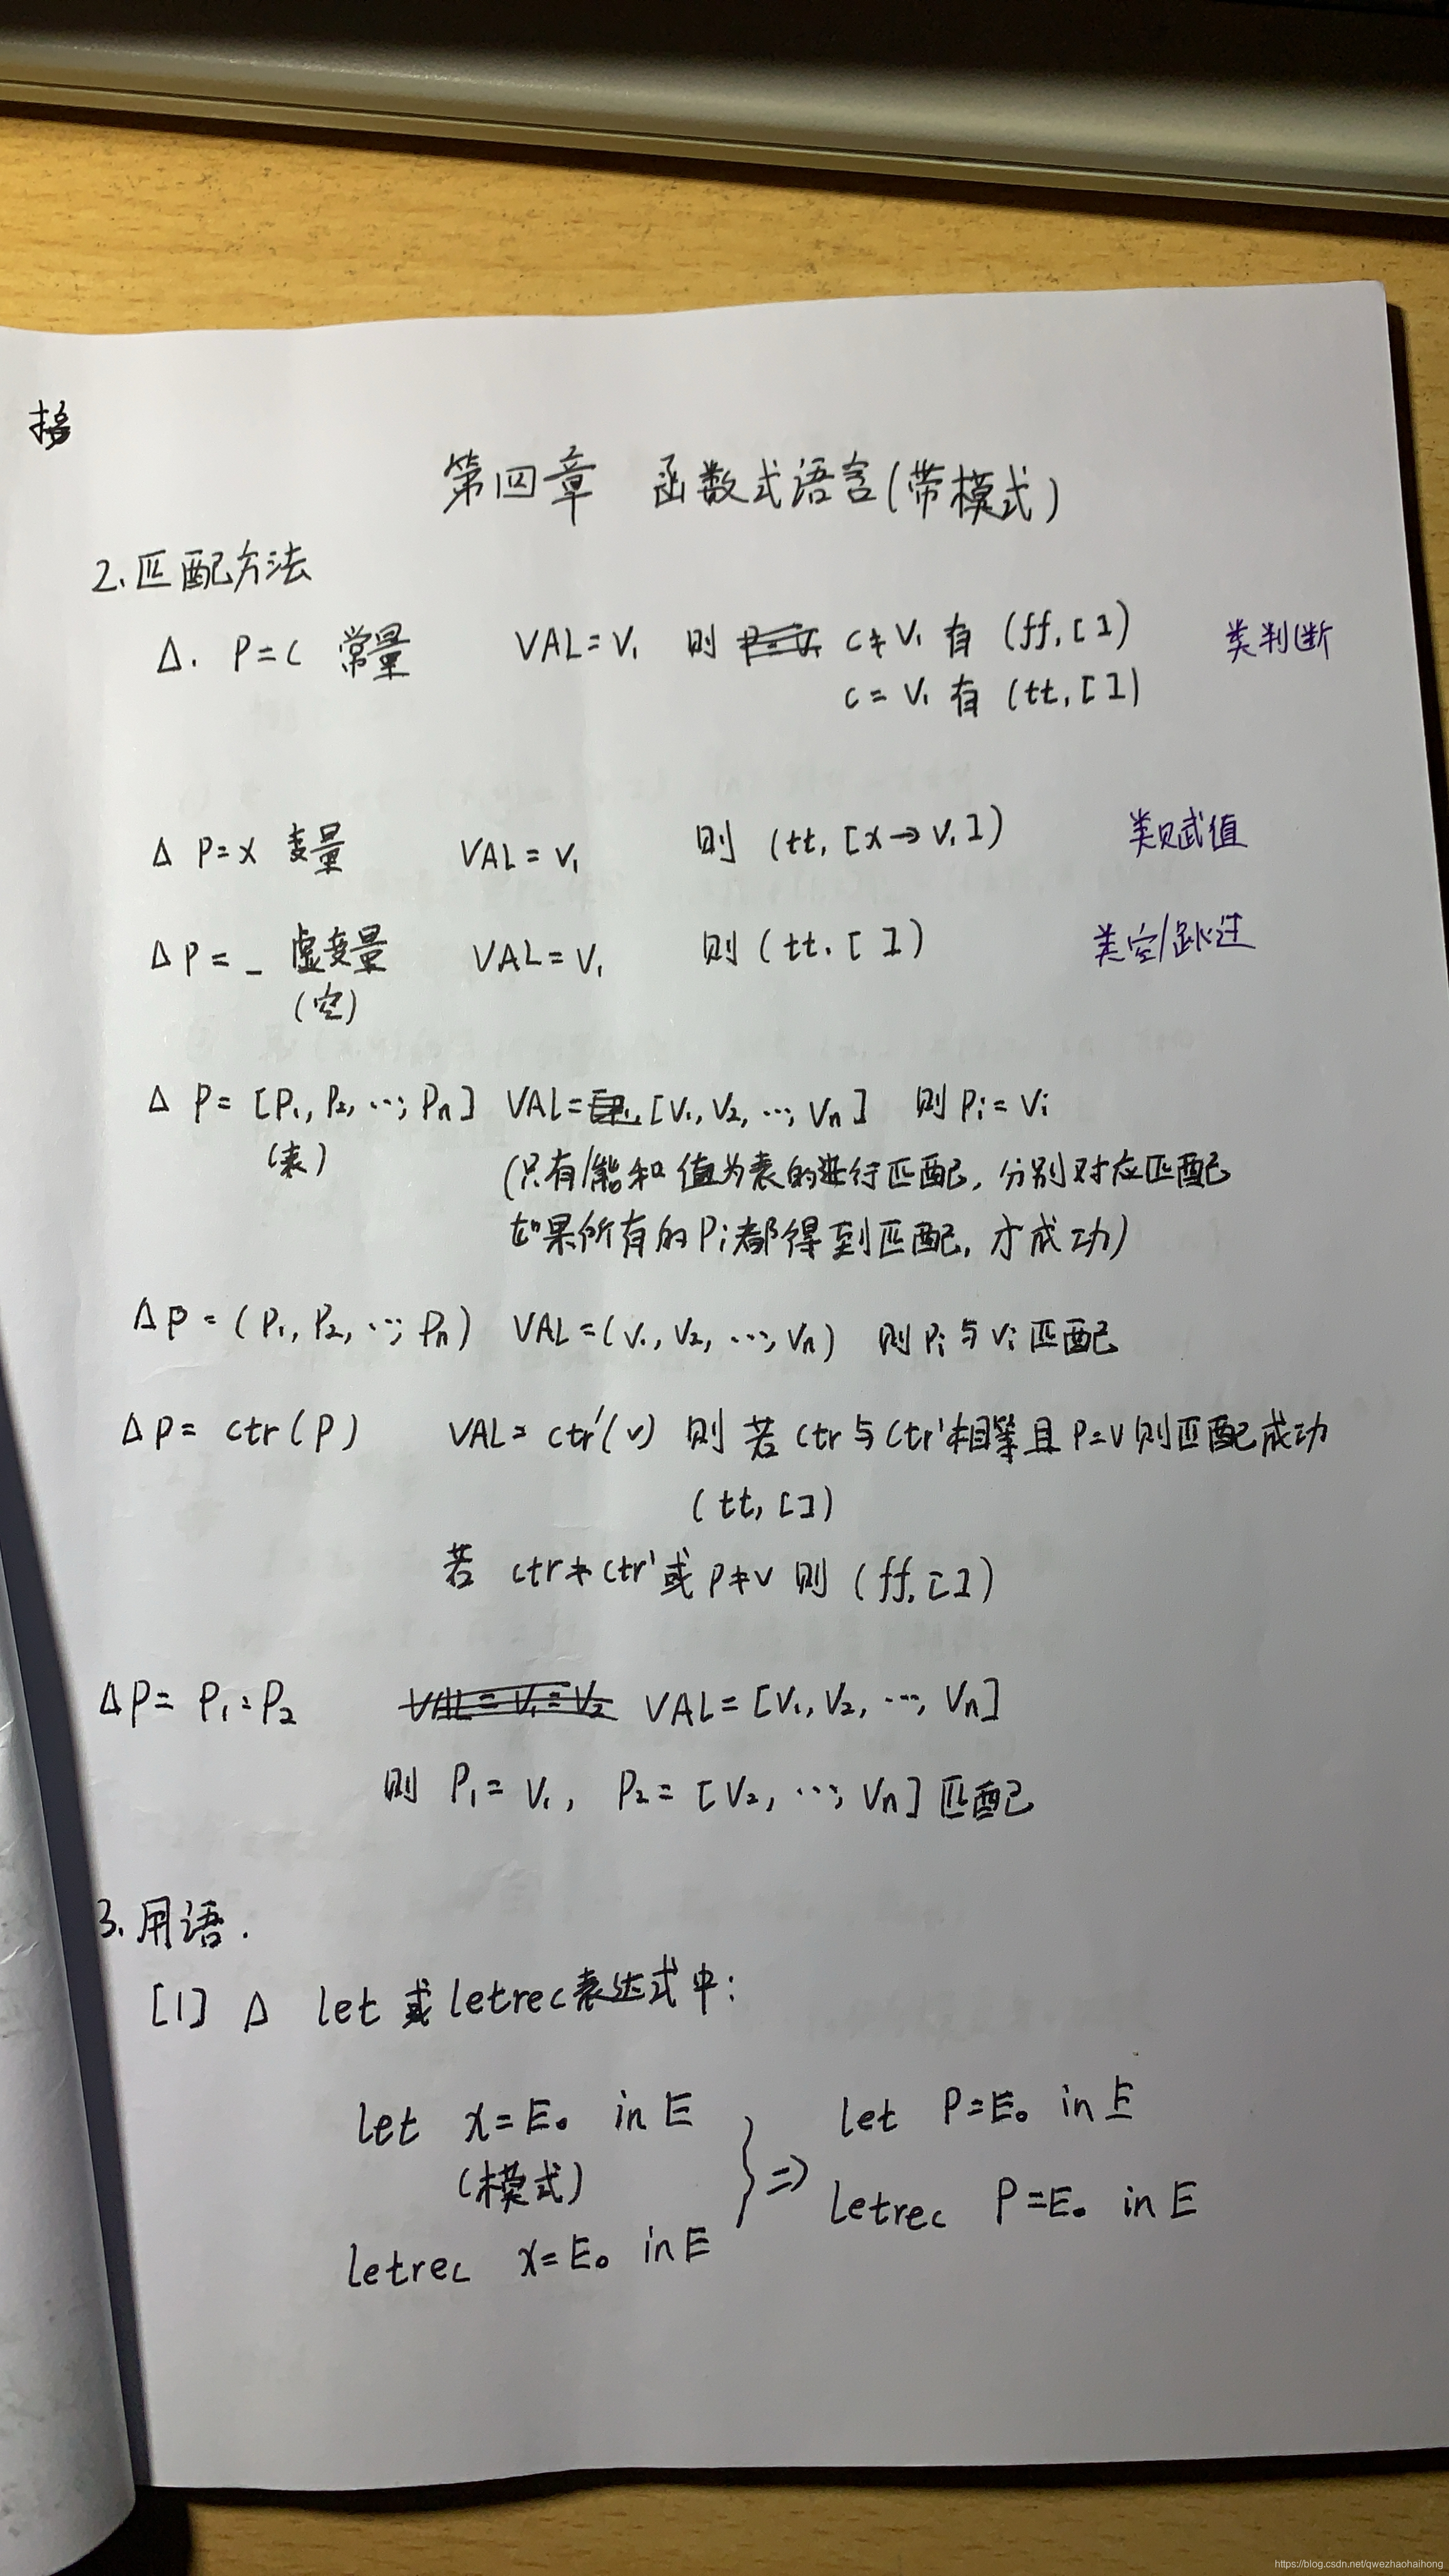 第四章 函数式语言(带模式)
2.匹配方法
Δ. P=c 常量 VAL=V₁ 则 c≠V₁ 有 (ff,[]) 类判断
c=V₁ 有 (tt,[])
Δ P=x 变量 VAL=V₁ 则 (tt,[x→V₁]) 类赋值
Δ P=_ 虚变量 VAL=V₁ 则(tt,[]) 类空/跳过
(空)
Δ P=[P₁,P₂,…,Pn] VAL=[V₁,V₂,…,Vn] 则Pi=Vi
(表)
(只有/能和值为表的进行匹配,分别对应匹配
如果所有的Pi都得到匹配,才成功)
Δ P=(P₁,P₂,…,Pn) VAL=(V₁,V₂,…,Vn) 则Pi与Vi匹配
Δ P=ctr(P) VAL=ctr'(v) 则若ctr与ctr'相等且P=V则匹配成功
(tt,[])
若 ctr≠ctr'或P≠V 则 (ff,[])
ΔP=P₁:P₂ VAL=[V₁,V₂,…,Vn]
则 P₁=V₁, P₂=[V₂,…,Vn]匹配
3.用语.
[1] Δ let 或letrec表达式中:
let x=E₀ in E
(模式)
letrec x=E₀ in E
} ⇒
let P=E₀ in E
letrec P=E₀ in E
https://blog.csdn.net/qwezhaohaihong